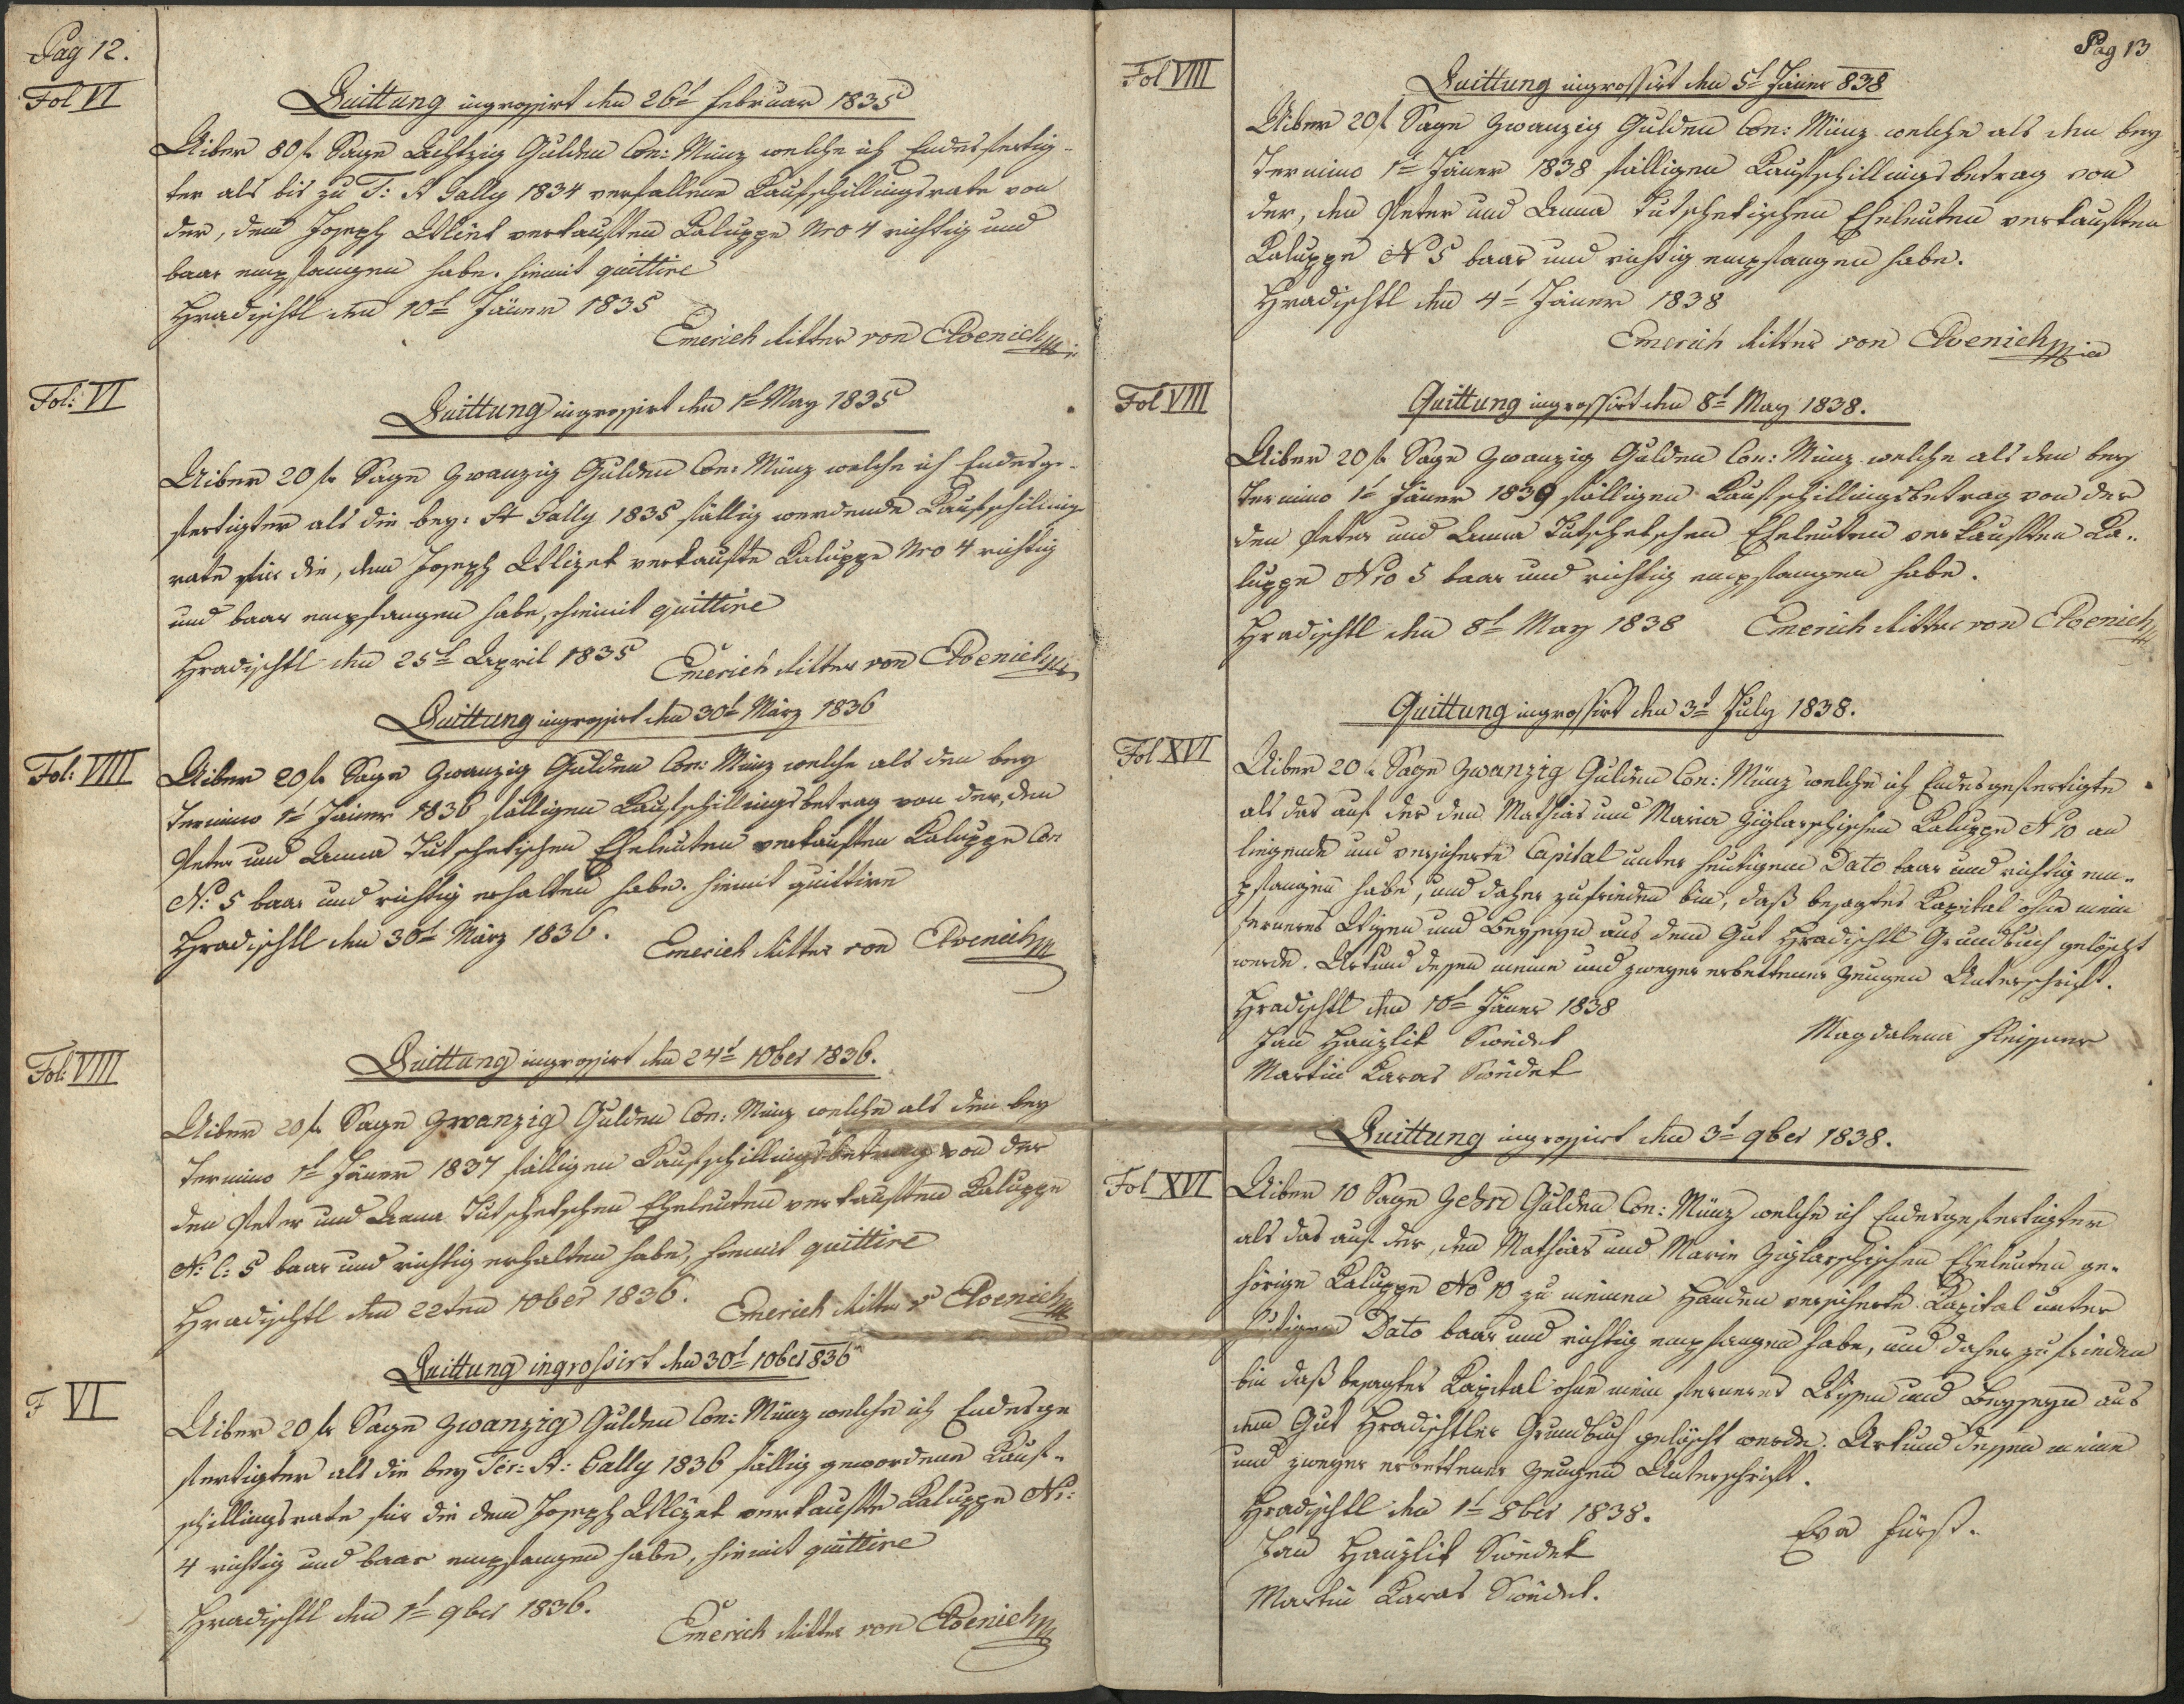 Pag 12.
Fol VI
Quittung ingrossirt den 26t Februar 1835
Uiber 80 f Sage Achtzig Gulden Con: Münz welche ich Endesfertig-
ter als bis zu T: St Gally 1834 verfallene Kaufschillingsrate von
der, dem Joseph verkauften Kaluppe Nro 4 richtig und
baar empfangen habe. hiemit quittire
Hradischtl den 10t Jäner 1835
Emerich Ritter von
Fol: VI
Quittung ingrossirt den 1t May 1835
Uiber 20 f Sage Zwanzig Gulden Con: Münz welche ich Endesge-
fertigter als die bey: St Gally 1835 fällig werdende Kaufschilling-
rate für die, dem Joseph verkaufte Kaluppe Nro 4 richtig
und baar empfangen habe, hiemit quittire
Hradischtl den 25t April 1835
Emerich Ritter von
Quittung ingrossirt den 30t März 1836
Fol: VIII
Uiber 20 f Sage Zwanzig Gulden Con: Münz welche als den bey
Termino 1t Jäner 1836 fälligen Kaufschillingsbetrag von der, den
Peter und Anna Tutschekischen Eheleuten verkauften Kaluppe Con
N: 5 baar und richtig erhalten habe. hiemit quittire
Hradischtl den 30t März 1836.
Emerich Ritter von
Fol: VIII
Quittung ingrossirt den 24t 10ber 1836.
Uiber 20 f Sage Zwanzig Gulden Con: Münz welche als den bey
Termino 1t Jäner 1837 fälligen Kaufschillingsbetrag von der
den Peter und Anna Tutschekschen Eheleuten verkauften Kaluppe
N: C: 5 baar und richtig erhalten habe, hiemit quittire
Hradischtl den 22ten 10ber 1836.
Emerich Ritter v
Quittung ingrossirt den 30t 10ber 836
F VI
Uiber 20 f Sage Zwanzig Gulden Con: Münz welche ich Endesge
fertigter als die bey Ter: St: Gally 1836 fällig gewordene Kauf-
schillingsrate für die dem Joseph verkaufte Kaluppe Nr:
4 richtig und baar empfangen habe, hiemit quittire
Hradischtl den 1t 9ber 1836.
Emerich Ritter von
Pag 13
Fol VIII
Quittung ingrossirt den 5t Jäner 838
Uiber 20 f Sage Zwanzig Gulden Con: Münz welche als den bey
Termino 1t Jäner 1838 fälligen Kaufschillingsbetrag von
der, den Peter und Anna Tutschekischen Eheleuten verkauften
Kaluppe N 5 baar und richtig empfangen habe.
Hradischtl den 4t Jäner 1838
Emerich Ritter von
Fol VIII
Quittung ingrossirt den 8t May 1838.
Uiber 20 f Sage Zwanzig Gulden Con: Münz welche als den bey
Termino 1t Jäner 1839 fälligen Kaufschillingsbetrag von der
den Peter und Anna Tutschekschen Eheleuten verkauften Ka-
luppe Nro 5 baar und richtig empfangen habe.
Hradischtl den 8t May 1838
Emerich Ritter von
Quittung ingrossirt den 3t July 1838.
Fol XVI
Uiber 20 f Sage Zwanzig Gulden Con: Münz welche ich Endesgefertigte
als das auf der den Mathias und Maria Kaluppe N 10 an
liegende und versicherte Capital unter heutigem Dato baar und richtig em-
pfangen habe, und daher zufrieden bin, daß besagtes Kapital ohne mein
ferneres Wissen und Beyseyn aus dem Gut Hradischtl Grundbuch gelöscht
werde. Urkund dessen meine und zweyer erbettener Zeugen Unterschrift.
Hradischtl den 10t Jäner 1838
Jan Hauzlik Swědek
Magdalena Fleissner
Martin Karas Swědek
Quittung ingrossirt den 3t 9ber 1838.
Fol XVI
Uiber 10 Sage Zehn Gulden Con: Münz welche ich Endesgefertigter
als das auf der, den Mathias und Marie Eheleuten ge-
hörige Kaluppe No 10 zu meinen Handen versicherte Kapital unter
heutigem Dato baar und richtig empfangen habe, und daher zufrieden
bin daß besagtes Kapital ohne mein ferneres Wissen und Beyseyn aus
dem Gut Hradischtler Grundbuch gelöscht werde. Urkund dessen meine
und zweyer erbettener Zeugen Unterschrift.
Hradischtl den 1t 8ber 1838.
Eva Fürst.
Jan Hauzlik Swědek
Martin Karas Swědek.